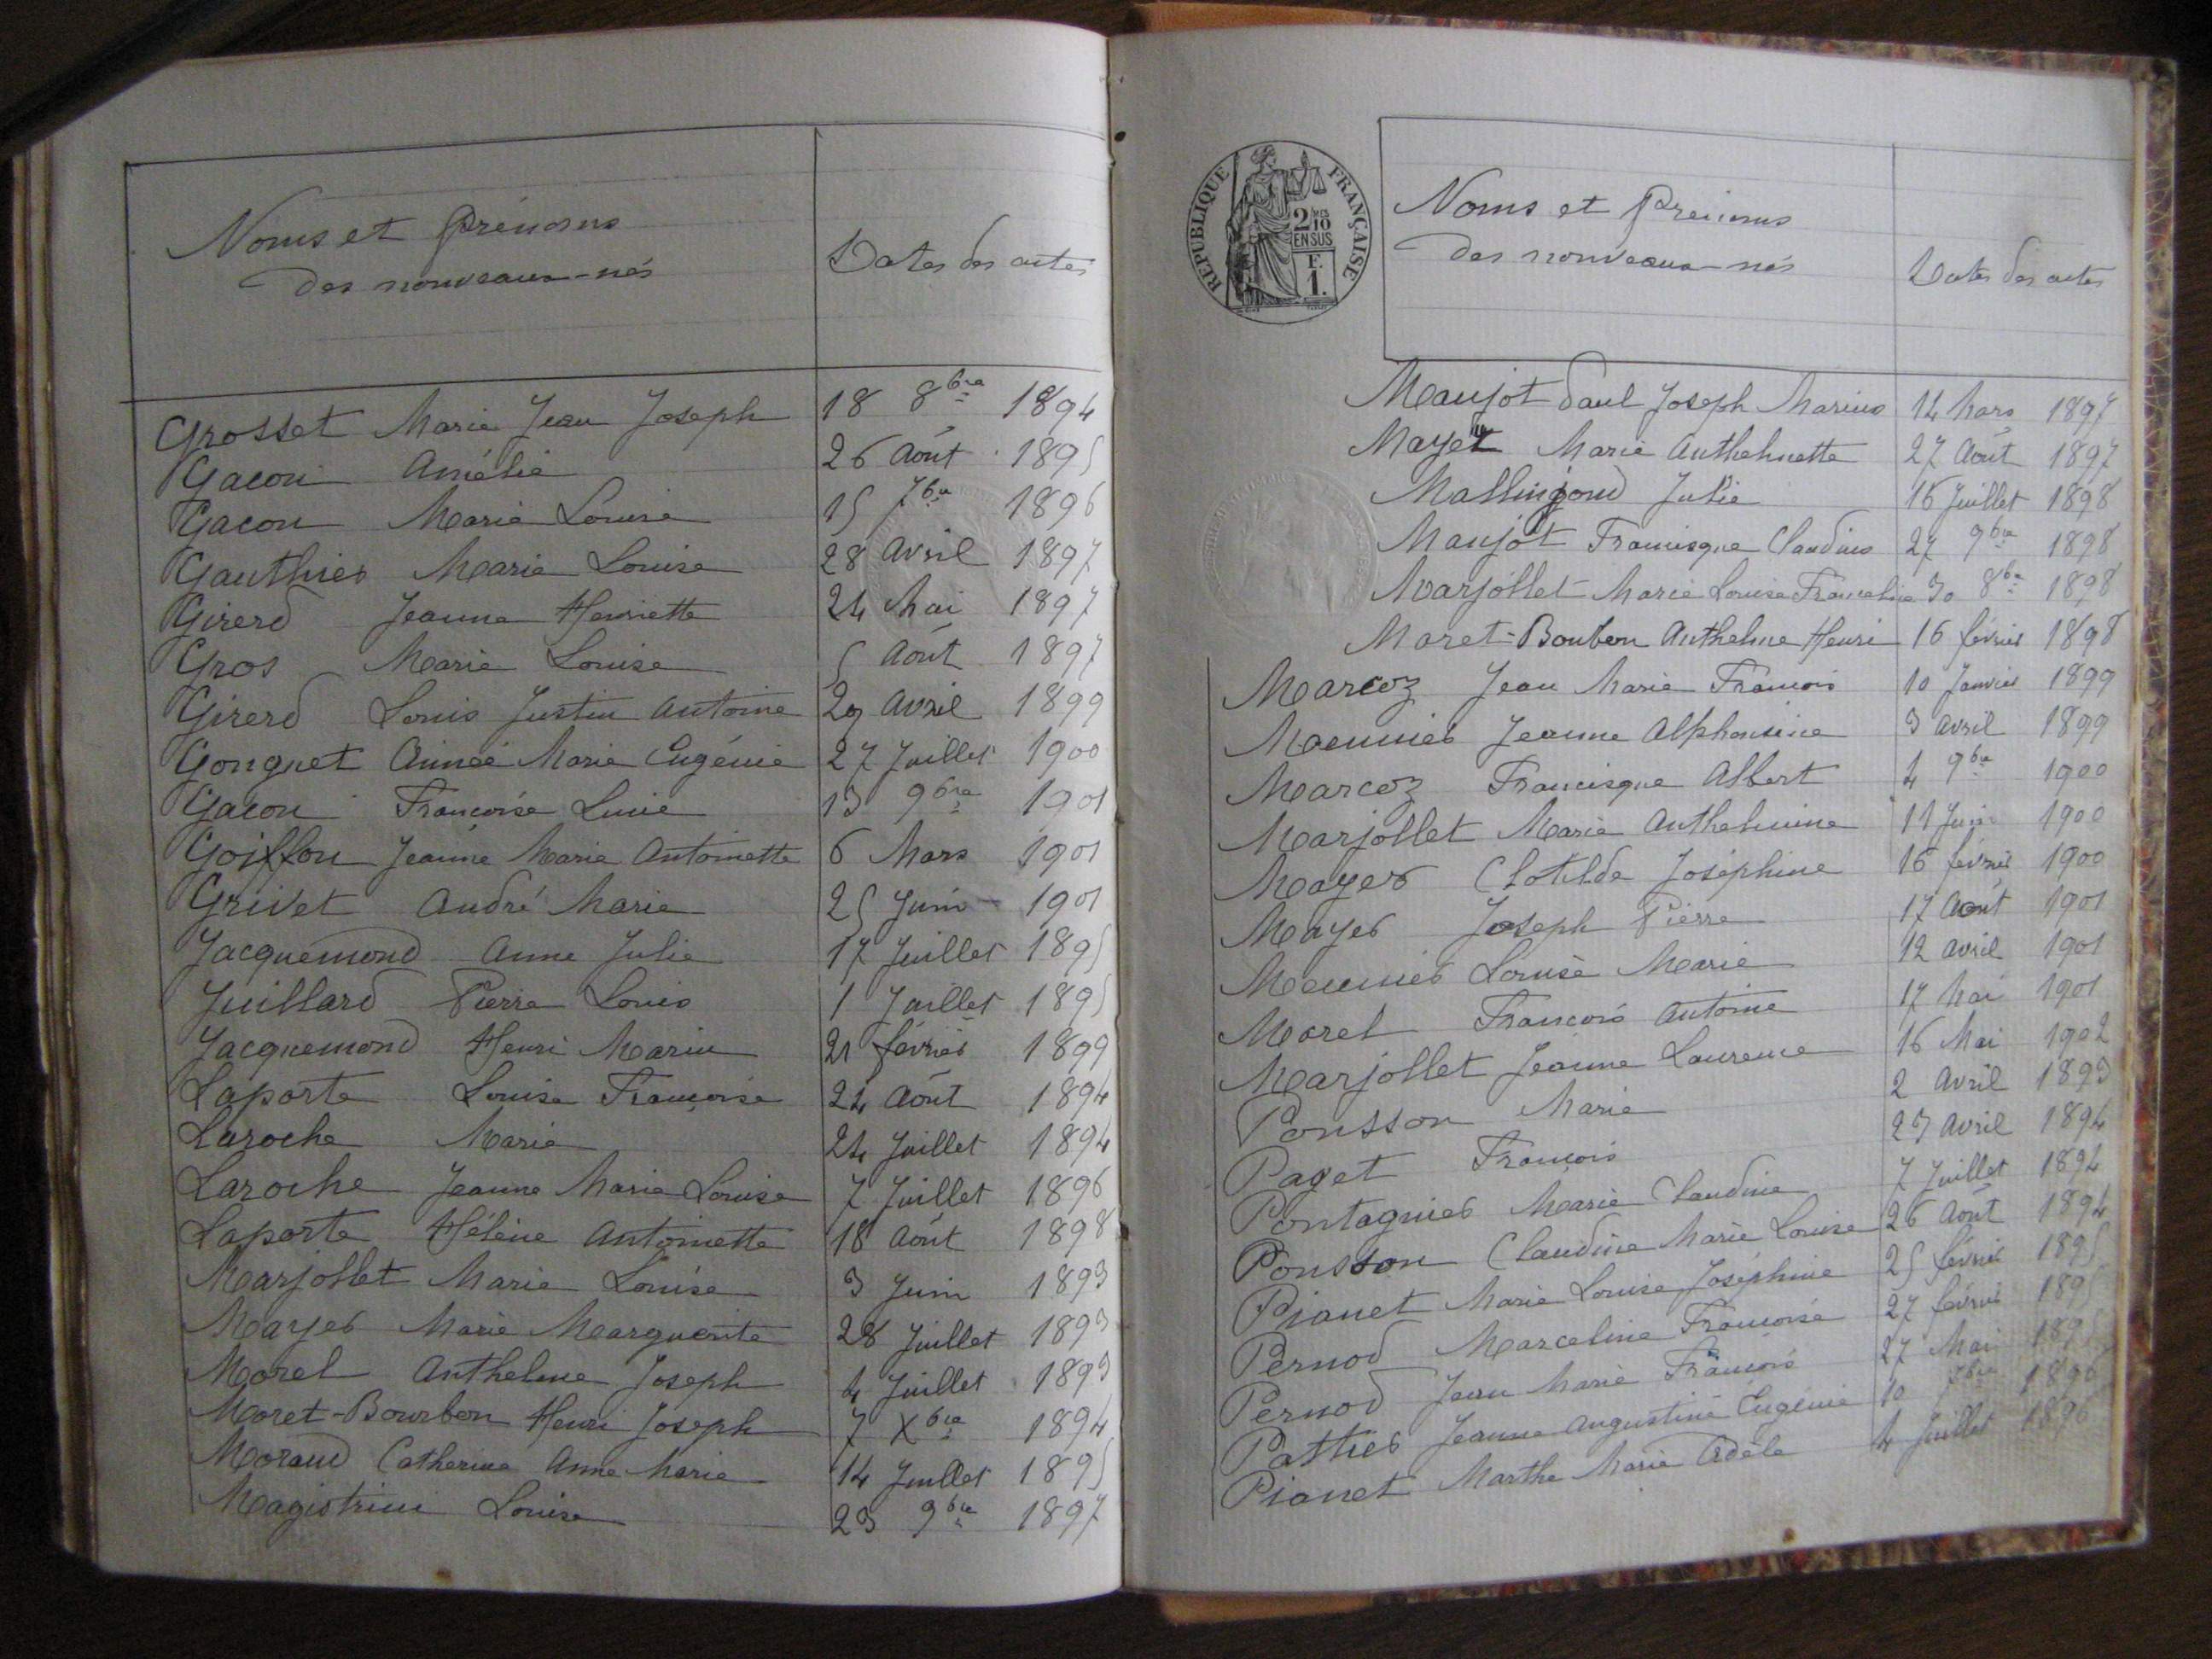 Noms et Prénoms
des nouveaux-nés
Dates des actes
Grosset Marie Jean Joseph 18 8bre 1894
Gacon Amélie 26 Août 1895
Gacon Marie Louise 15 7bre 1896
Gauthier Marie Louise 28 Avril 1897
Girerd Jeanne Henriette 24 Mai 1897
Gros Marie Louise 5 Août 1897
Girerd Louis Justin Antoine 29 Avril 1899
Gonguet Aimée Marie Eugénie 27 Juillet 1900
Gacon Françoise Lucie 13 9bre 1901
Goiffon Jeanne Marie Antoinette 6 Mars 1901
Grivet André Marie 25 Juin 1901
Jacquemond Anne Julie 17 Juillet 1895
Juillard Pierre Louis 1 Juillet 1895
Jacquemond Henri Marin 21 février 1899
Laporte Louise Françoise 24 Août 1894
Laroche Marie 24 Juillet 1894
Laroche Jeanne Marie Louise 7 Juillet 1896
Laporte Hélène Antoinette 18 Août 1898
Marjollet Marie Louise 3 Juin 1893
Mayer Marie Marguerite 28 Juillet 1893
Morel Anthelme Joseph 4 Juillet 1893
Moret-Bourbon Henri Joseph 7 Xbre 1894
Morand Catherine Anne Marie 14 Juillet 1895
Magistrini Louise 23 9bre 1897
RÉPUBLIQUE FRANÇAISE
2/10 MES
EN SUS
F.
1.
Noms et Prénoms
des nouveaux-nés
Dates des actes
Maujot Paul Joseph Marius 14 Mars 1897
Mayer Marie Anthelmette 27 Août 1897
Mallingond Julie 16 Juillet 1898
Maujot Francisque Claudius 27 9bre 1898
Marjollet Marie Louise Franceline 30 8bre 1898
Moret-Boubon Anthelme Henri 16 février 1898
Marcoz Jean Marie François 10 Janvier 1899
Meunier Jeanne Alphonsine 3 Avril 1899
Marcoz Francisque Albert 4 9bre 1900
Marjollet Marie Anthelmine 11 Juin 1900
Mayer Clotilde Joséphine 16 février 1900
Mayer Joseph Pierre 17 Août 1901
Meunier Louise Marie 12 Avril 1901
Morel François Antoine 17 Mai 1901
Marjollet Jeanne Laurence 16 Mai 1902
Ponsson Marie 2 Avril 1893
Paget François 23 Avril 1894
Pontagnier Marie Claudine 7 Juillet 1894
Ponsson Claudine Marie Louise 26 Août 1894
Pianet Marie Louise Joséphine 25 février 1895
Pernod Marceline Françoise 27 février 1895
Pernod Jean Marie François 27 Mai 1895
Pattier Jeanne Augustine Eugénie 10 7bre 1896
Pianet Marthe Marie Adèle 4 Juillet 1896